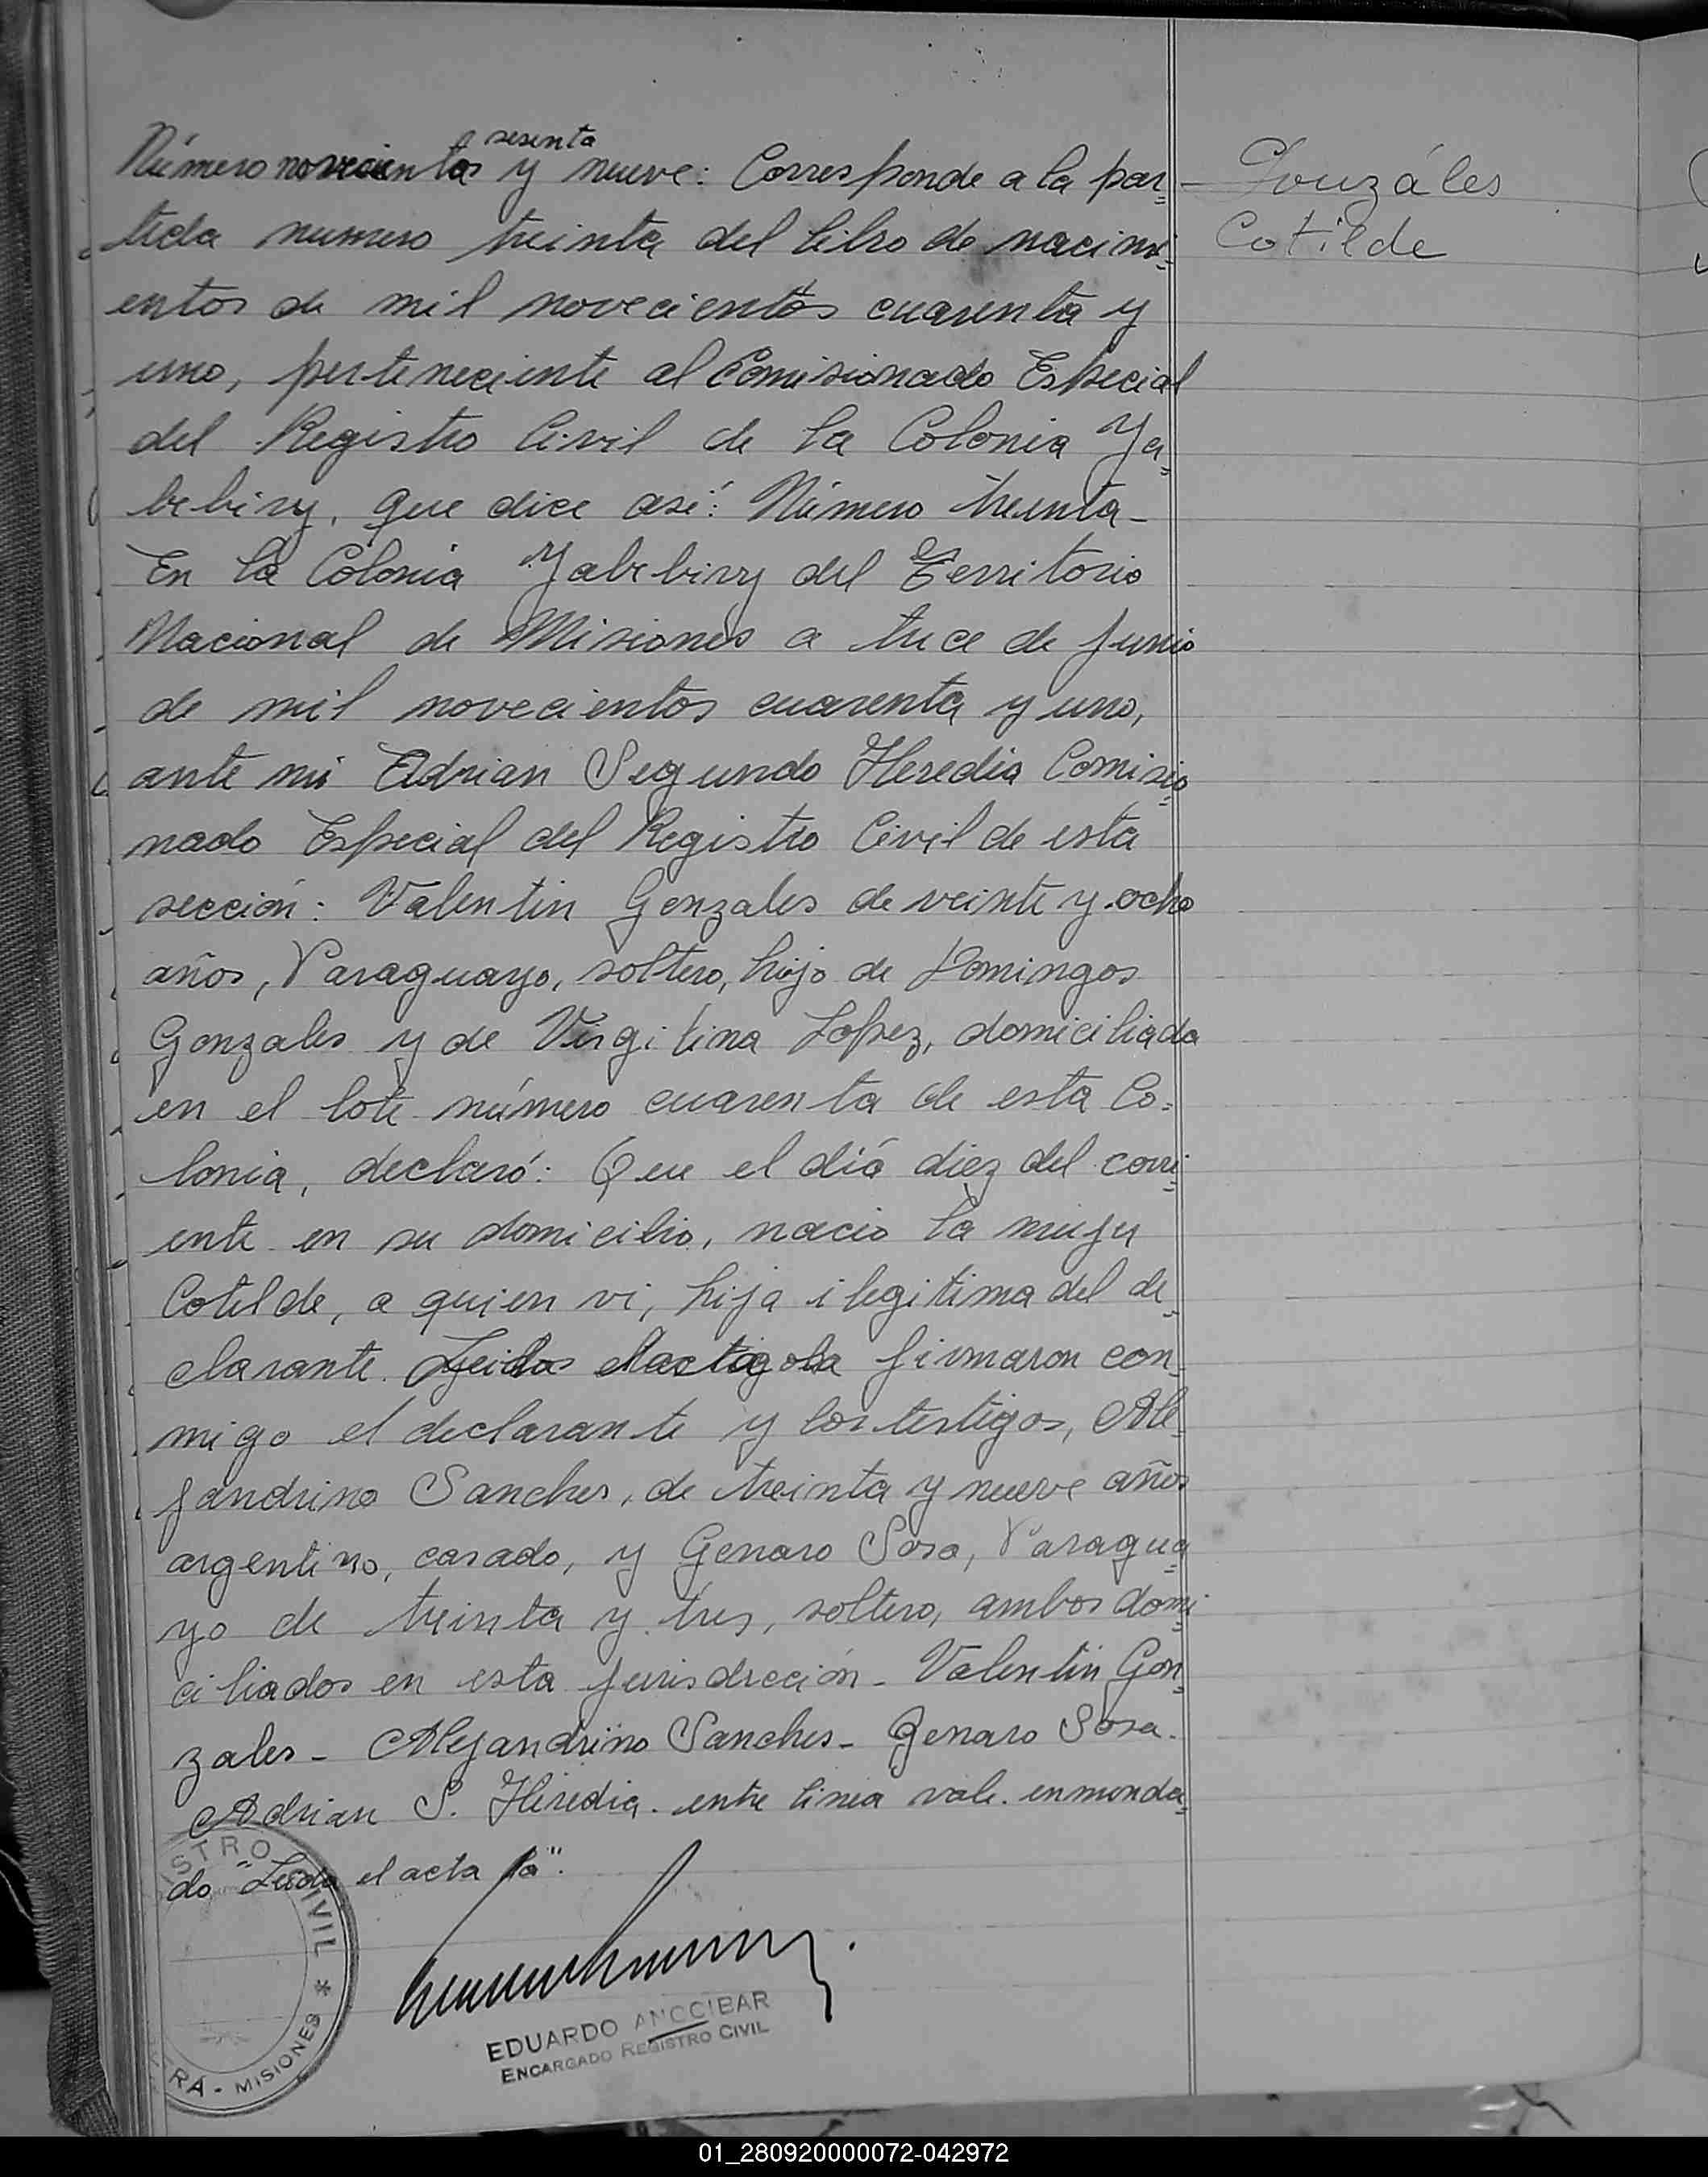 sesenta
Número novecientos y nueve: Corresponde a la par=
tida numero treinta del libro de nacimi=
entos de mil novecientos cuarenta y
uno, perteneciente al Comisionado Especial
del Registro Civil de la Colonia Ya=
bebiry, que dice así: Número treinta-
En la Colonia Yabebiry del Territorio
Nacional de Misiones a trece de Junio
de mil novecientos cuarenta y uno,
ante mi Adrian Segundo Heredia Comisio=
nado Especial del Registro Civil de esta
sección: Valentin Gonzales de veinte y ocho
años, Paraguayo, soltero, hijo de Domingos
Gonzales y de Virgilina Lopez, domiciliado
en el lote número cuarenta de esta Co=
lonia, declaró: Que el día diez del corri=
ente en su domicilio, nacio la mujer
Cotilde, a quien vi, hija ilegitima del de=
clarante. Leida el acta la firmaron con=
migo el declarante y los testigos, Ale=
jandrino Sanches, de treinta y nueve años
argentino, casado, y Genaro Sosa, Paragua=
yo de treinta y tres, soltero, ambos domi=
ciliados en esta jurisdicción - Valentin Gon=
zales - Alejandrino Sanches - Genaro Sosa.
Adrian S. Heredia. entre linea vale. enmenda=
do "Leida el acta la".
Gonzáles
Cotilde
ISTRO CIVIL * MISIONES - RA
EDUARDO ANCCIBAR
ENCARGADO REGISTRO CIVIL
01_280920000072-042972